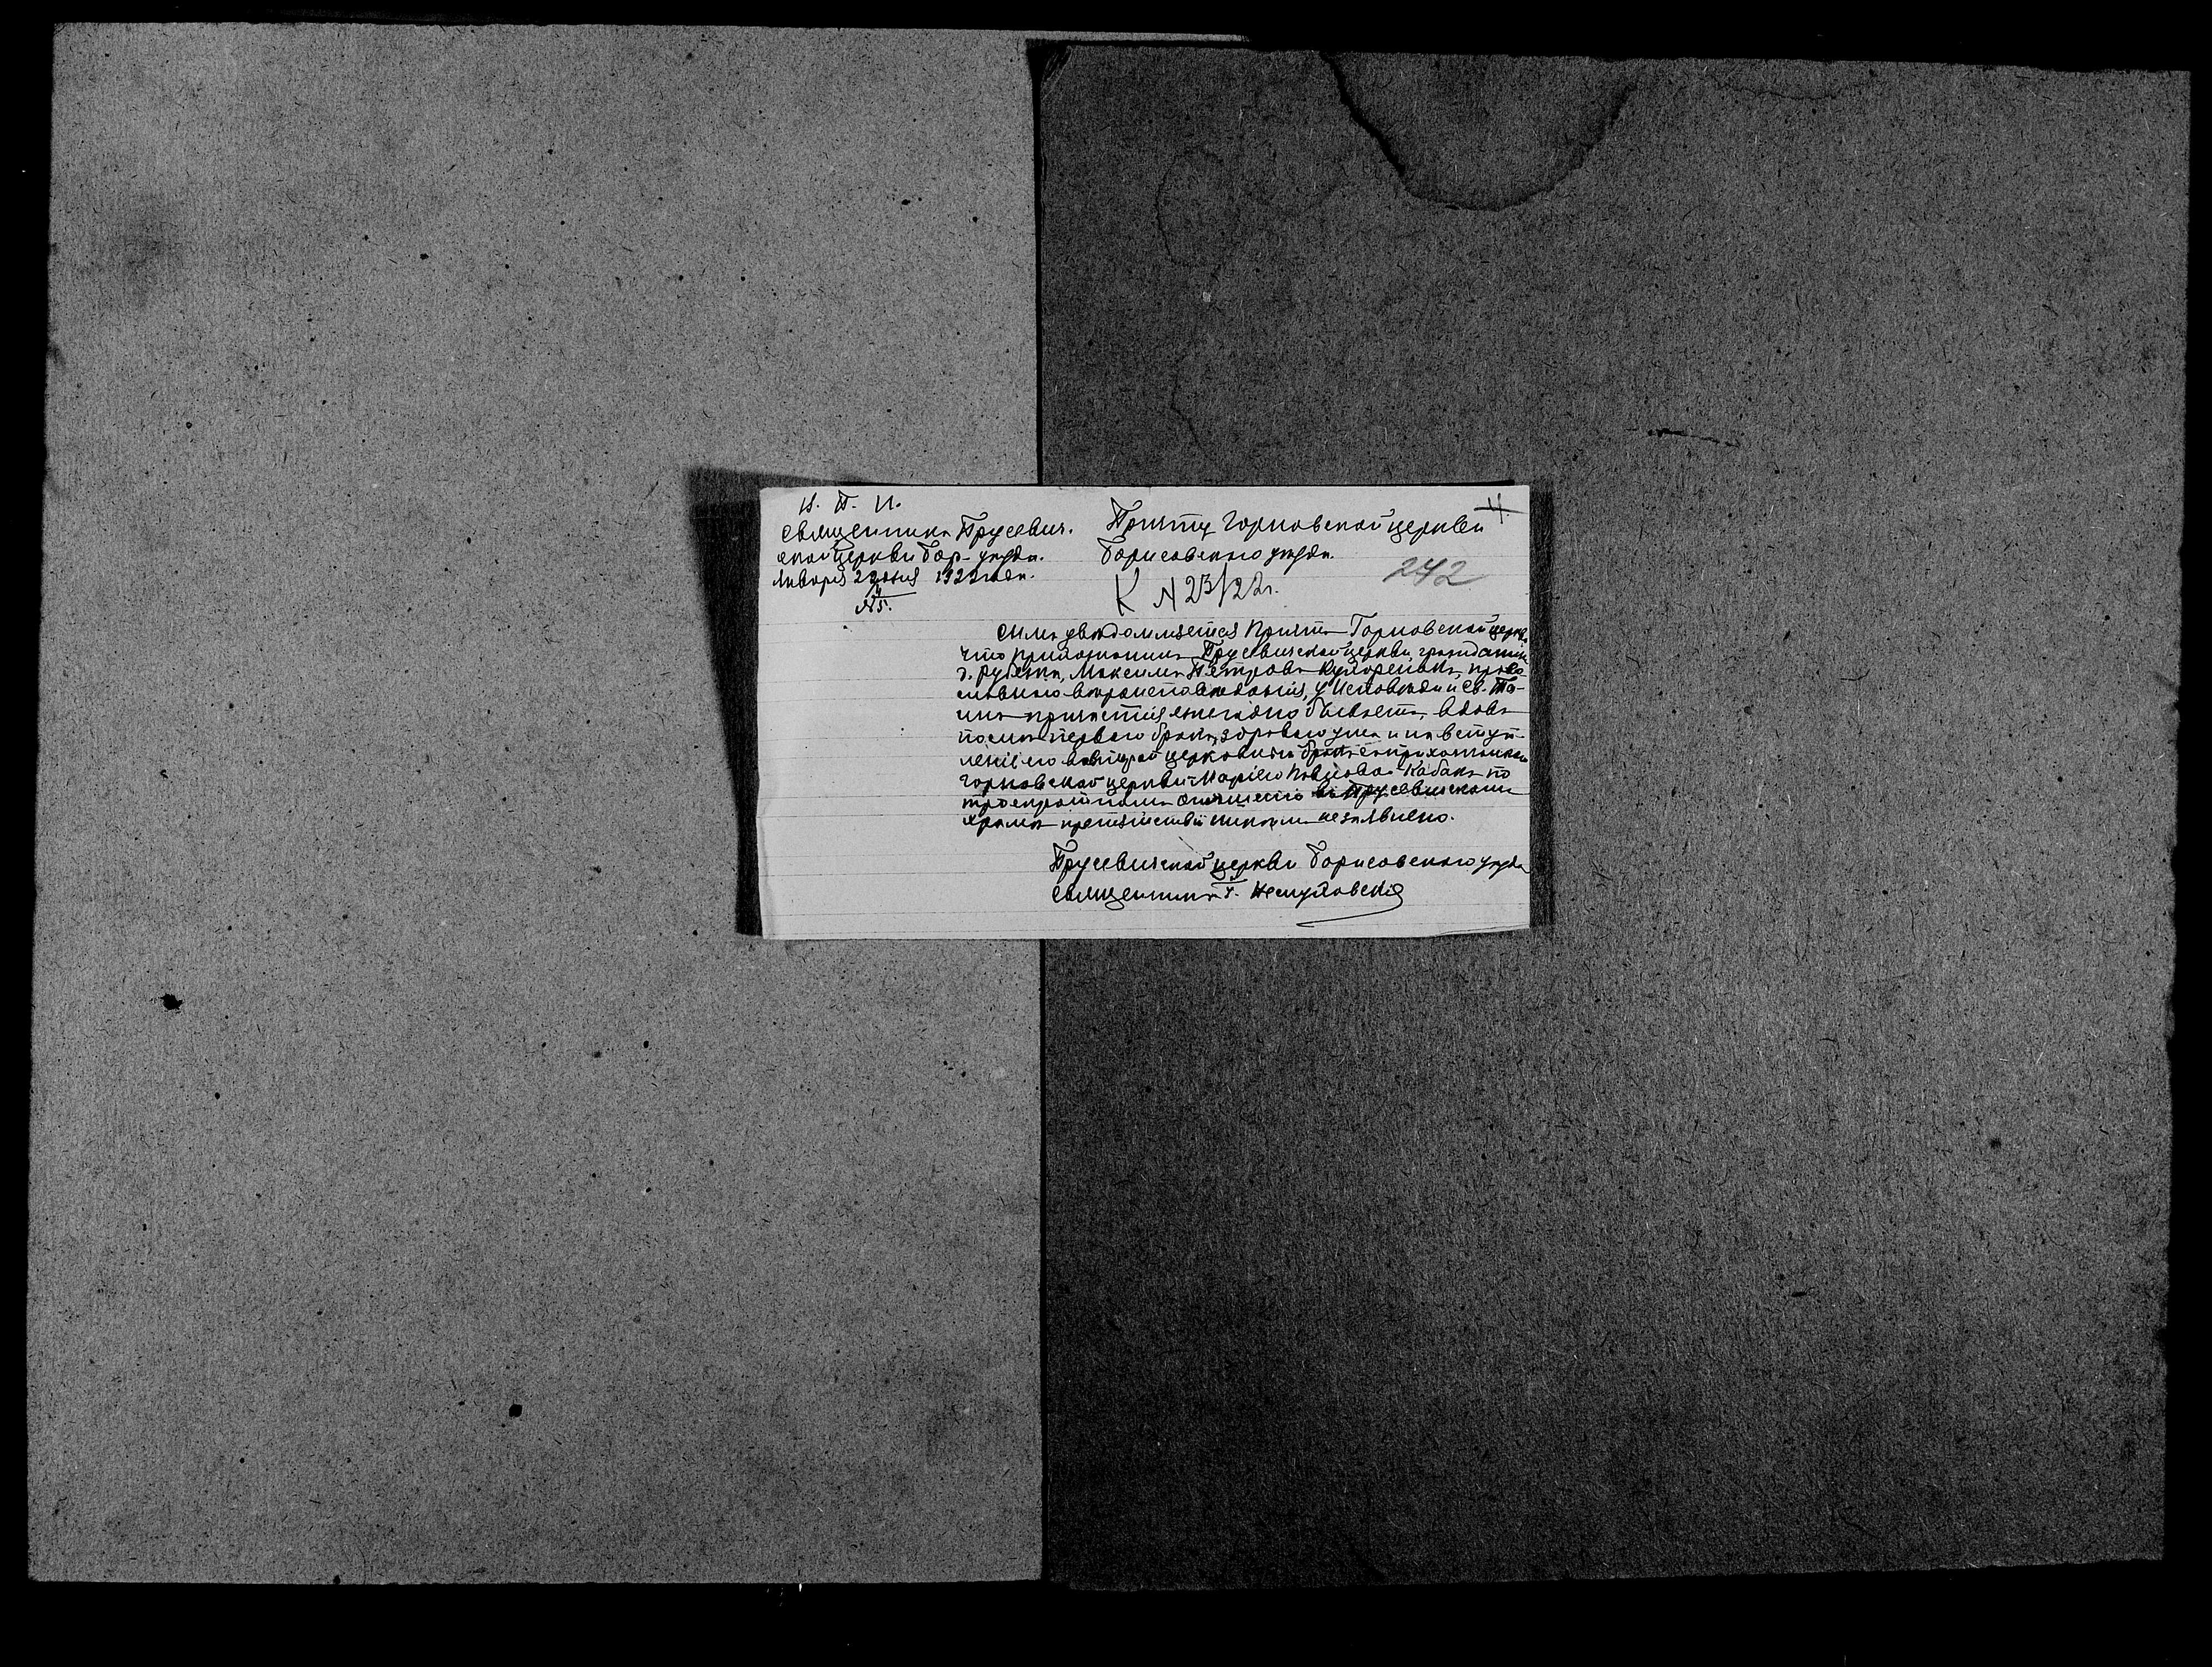 Н. П. И.
Священника Прусевич.
ской церкви Бор- уезда.
Января 22 дня 1922 года.
№5.
Причту Горновской церкви
Борисовского уезда.
242
К N 23/22 г.
Симъ уведомляется Причтъ Горновской церкви
что прихожанинъ Прусевичской церкви, гражданинъ
д. Рубежа, Максимъ Петровъ православнаго вероисповеданія, у Исповеди и Св. Та-
инъ причастія ежегодно бываетъ, вдовъ
после перваго брака, здраваго ума и на вступ-
леніе его во второй церковный бракъ съ прихожанкой
Горновской церкви Маріею Кабакъ по
троекратномъ оглашеніи въ Прусевичскомъ
храме препятствій никакихъ не заявлено.
Прусевичской церкви Борисовского уезда
священникъ